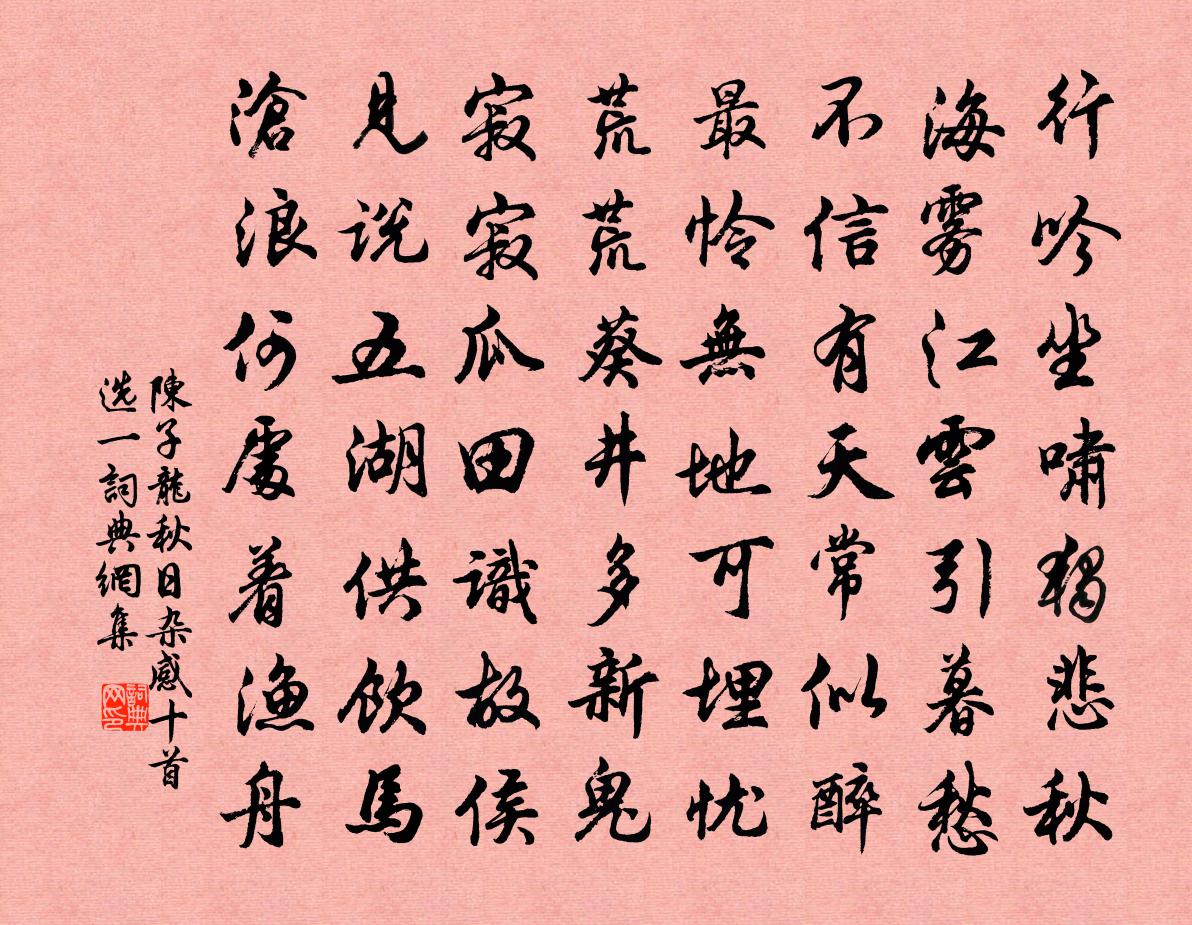 行吟坐啸獨悲秋
海雾江雲引暮愁
不信有天常似醉
最怜無地可埋忧
荒荒葵井多新鬼
寂寂瓜田識故侯
見说五湖供饮馬
滄浪何處着漁舟
陳子龍秋日杂感十首
选一詞典網集
詞典
网印